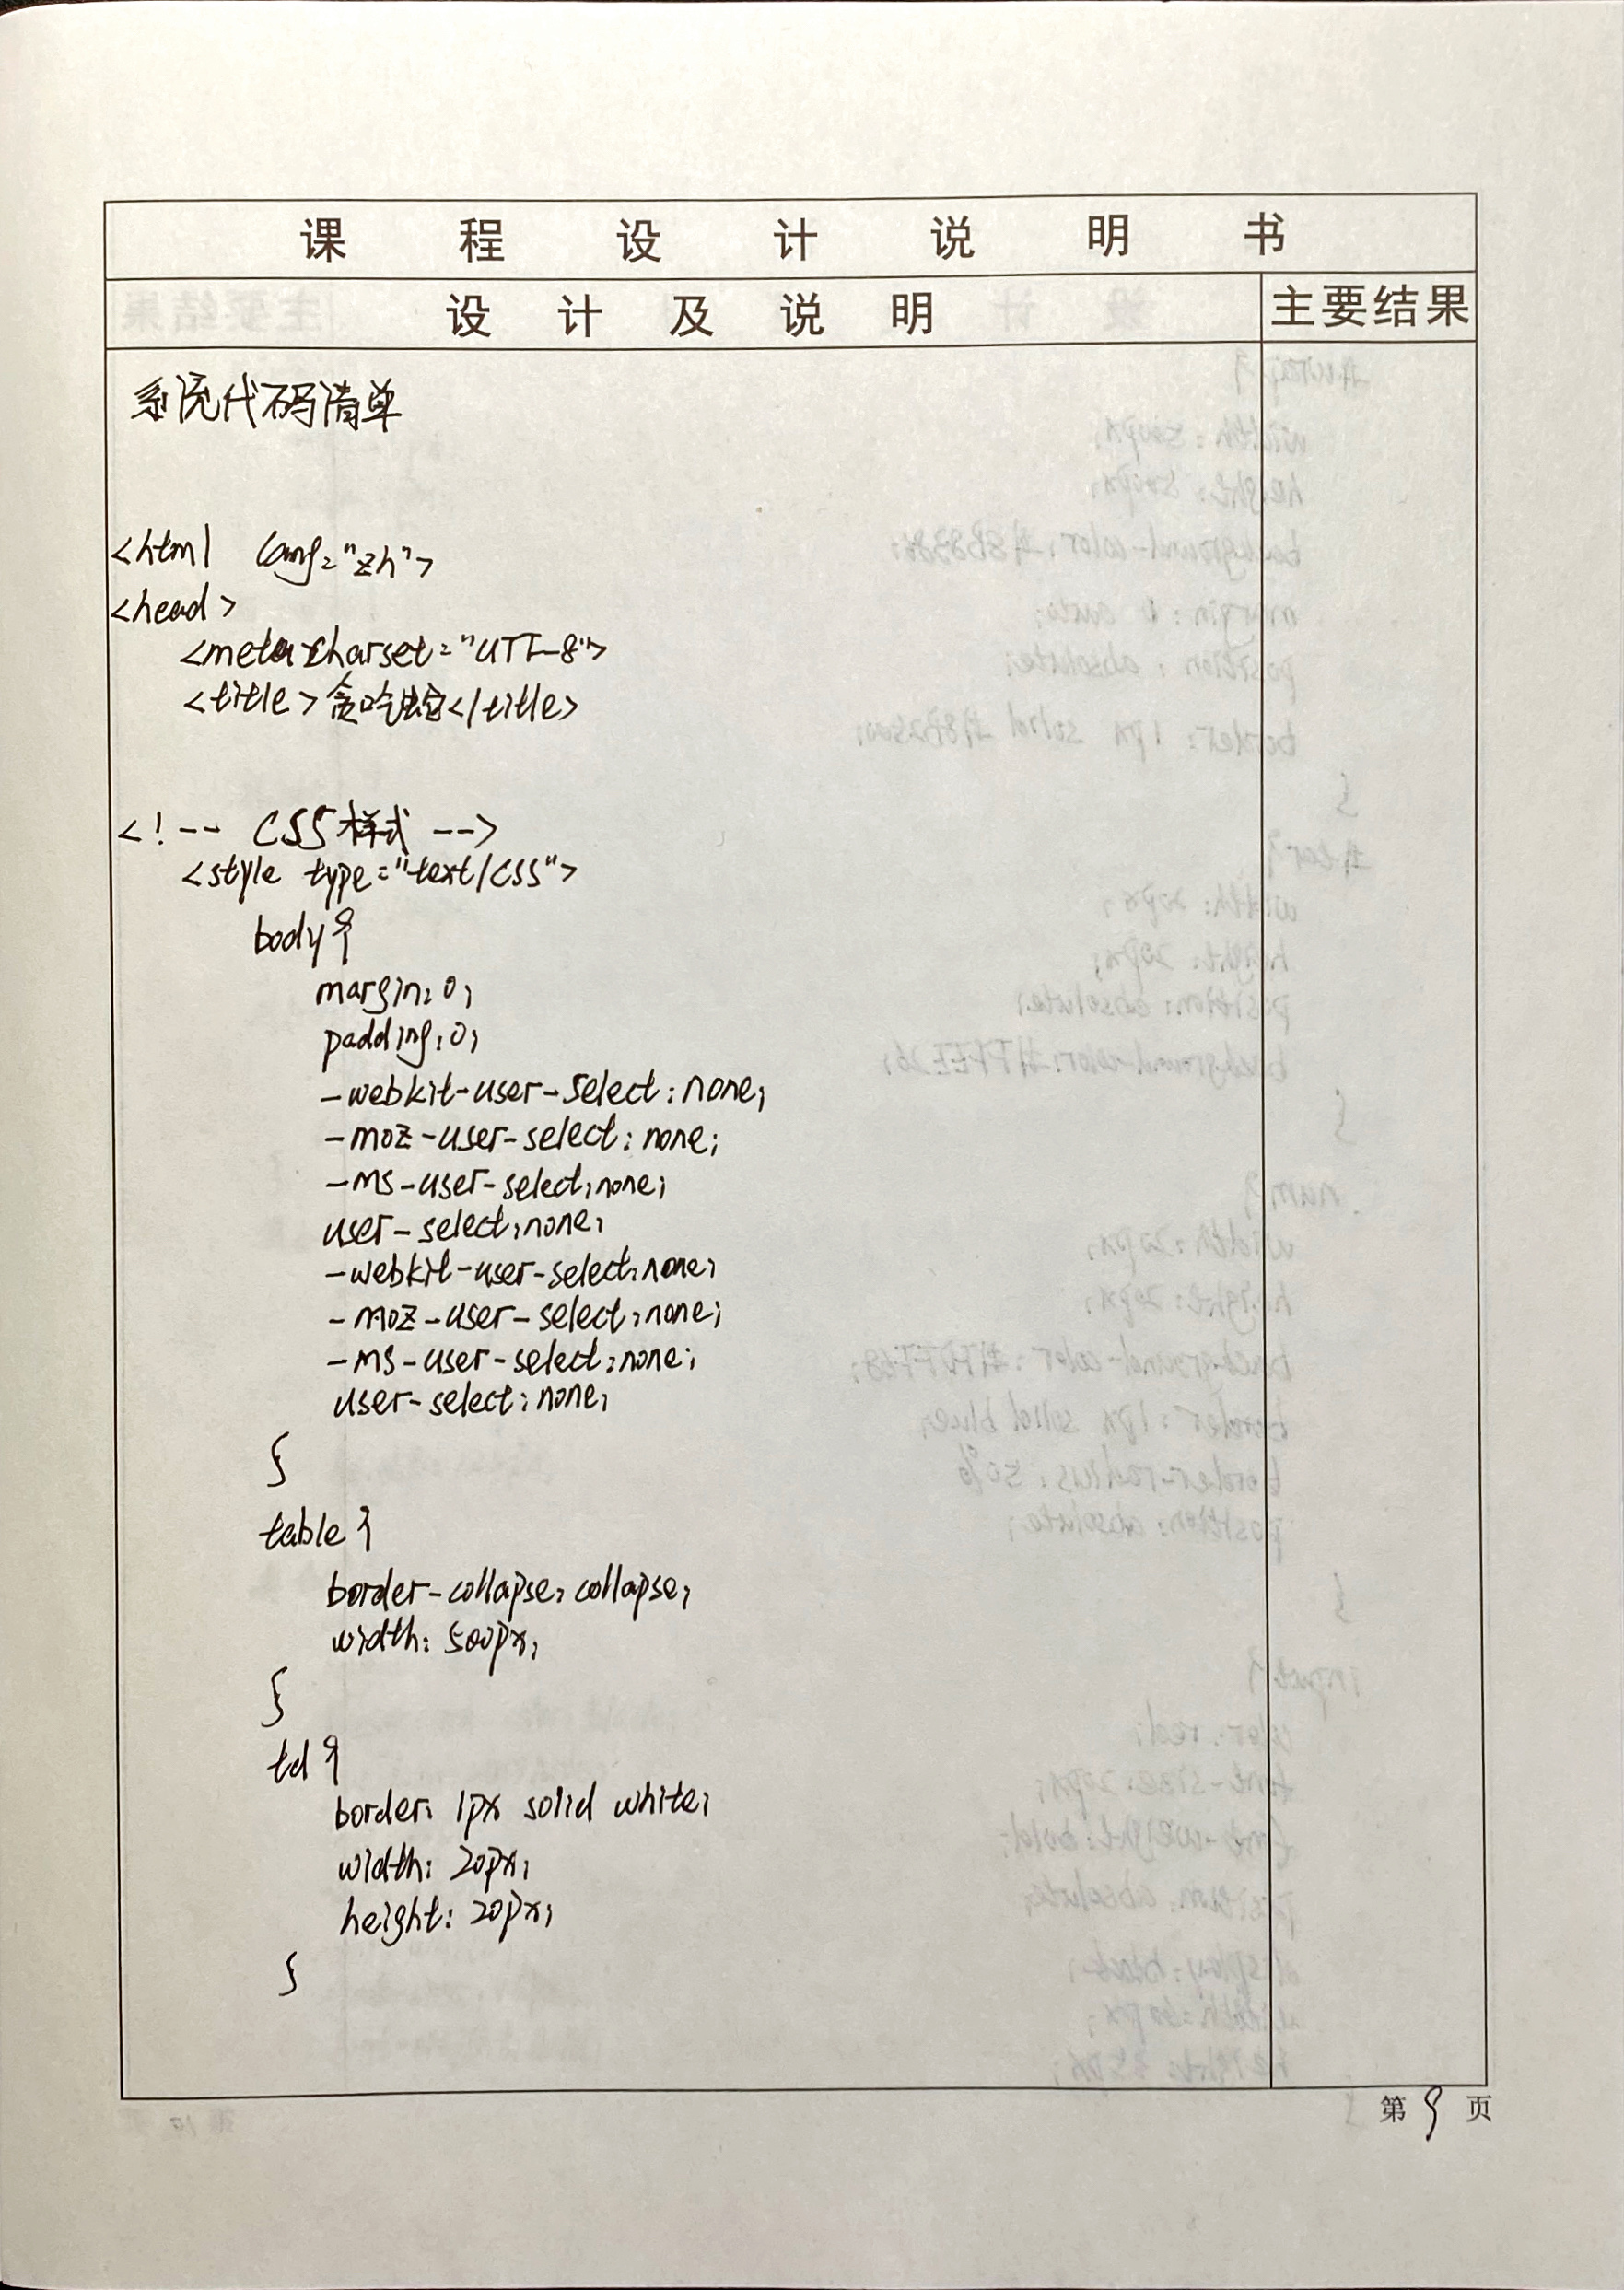 课程设计说明书
设计及说明 主要结果
系统代码清单
<html lang="zh">
<head>
<meta charset="UTF-8">
<title>贪吃蛇</title>
<!-- CSS样式 -->
<style type="text/css">
body{
margin:0;
padding:0;
-webkit-user-select:none;
-moz-user-select:none;
-ms-user-select:none;
user-select:none;
-webkit-user-select:none;
-moz-user-select:none;
-ms-user-select:none;
user-select:none;
}
table{
border-collapse:collapse;
width:500px;
}
td{
border:1px solid white;
width:20px;
height:20px;
}
第9页